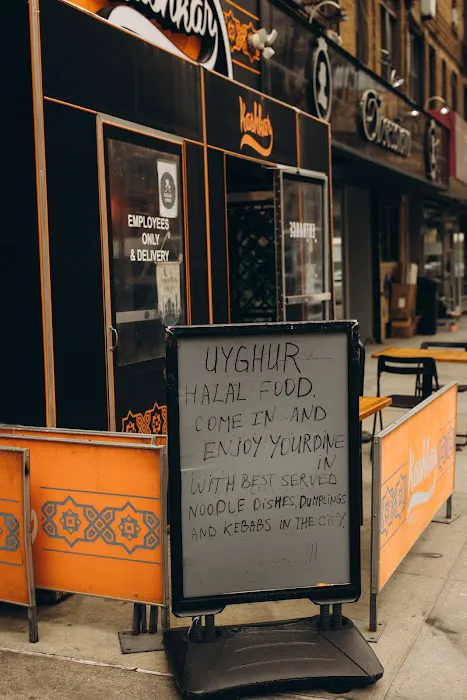 Kashkar
EMPLOYEES
ONLY
& DELIVERY
ENTRANCE
UYGHUR
HALAL FOOD.
COME IN AND
ENJOY YOUR DINE
IN
WITH BEST SERVED
NOODLE DISHES, DUMPLINGS
AND KEBABS IN THE CITY.
!!!
Kashkar